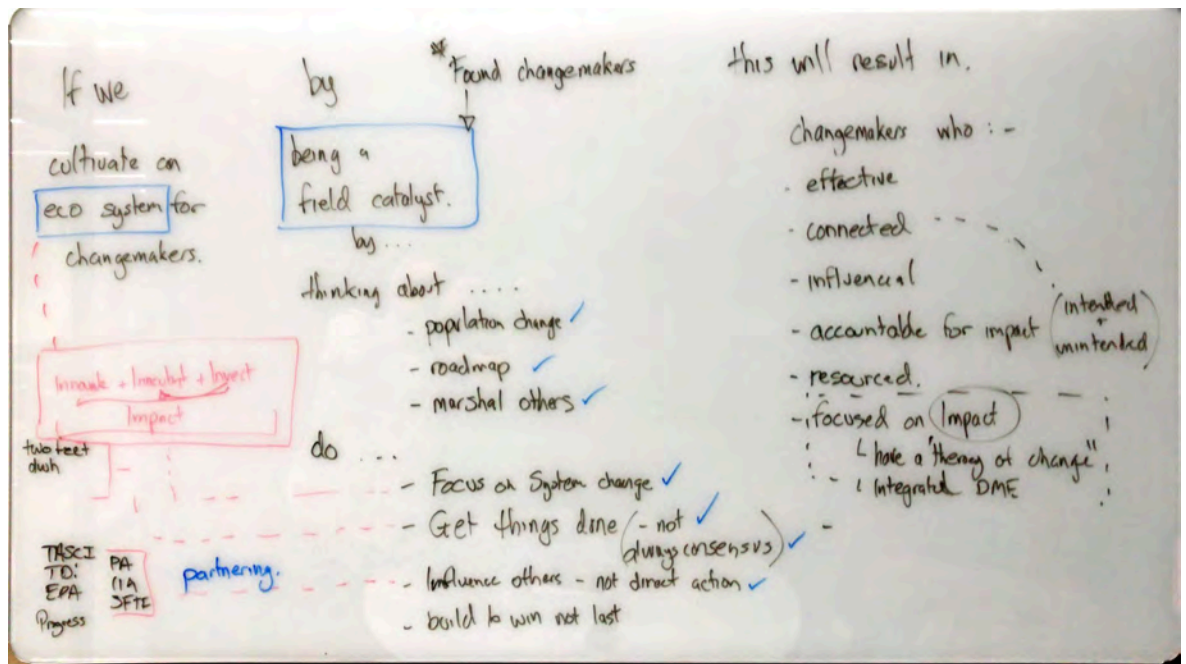 If we
cultivate an
eco system for
changemakers.
Impact
two feet
TASCI
TDi
EPA
Progress
PA
partnering.
by
* Found changemakers
being a
field catalyst.
by ...
thinking about ....
- population change ✓
- roadmap ✓
- marshal others ✓
do ...
- Focus on System change ✓
- Get things done (- not ✓
always consensus) ✓
- Influence others - not direct action ✓
- build to win not last
this will result in.
changemakers who :-
. effective
. connected
- influencial
- accountable for impact (intended
+
unintended)
- resourced.
- focused on Impact
have a "theory of change"
Integrated DME
-